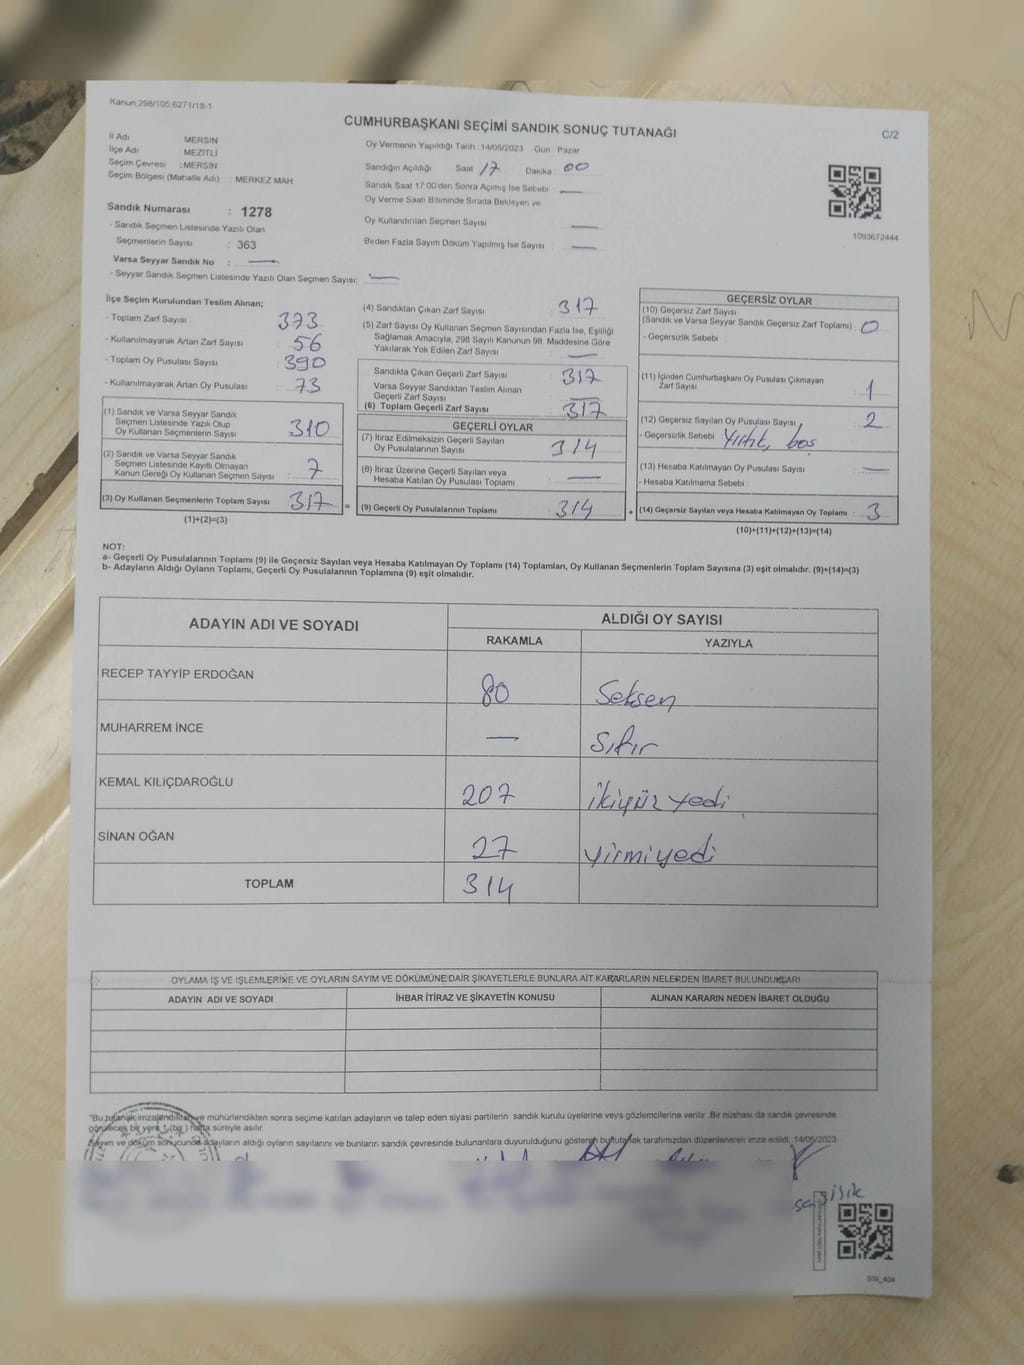 Kanun,298/105,6271/18-1
CUMHURBAŞKANI SEÇİMİ SANDIK SONUÇ TUTANAĞI
C/2
İl Adı MERSİN
İlçe Adı MEZİTLİ
Seçim Çevresi : MERSİN
Seçim Bölgesi (Mahalle Adı) : MERKEZ MAH.
Sandık Numarası : 1278
- Sandık Seçmen Listesinde Yazılı Olan
Seçmenlerin Sayısı : 363
Varsa Seyyar Sandık No : —
- Seyyar Sandık Seçmen Listesinde Yazılı Olan Seçmen Sayısı: —
Oy Vermenin Yapıldığı Tarih 14/05/2023 Gün : Pazar
Sandığın Açıldığı Saat 17 Dakika : 00
Sandık Saat 17:00'den Sonra Açımış İse Sebebi : —
Oy Verme Saati Bitiminde Sırada Bekleyen ve
Oy Kullandırılan Seçmen Sayısı : —
Birden Fazla Sayım Döküm Yapılmış İse Sayısı : —
1093672444
İlçe Seçim Kurulundan Teslim Alınan;
- Toplam Zarf Sayısı : 373
- Kullanılmayarak Artan Zarf Sayısı : 56
- Toplam Oy Pusulası Sayısı : 390
- Kullanılmayarak Artan Oy Pusulası : 73
(1) Sandık ve Varsa Seyyar Sandık
Seçmen Listesinde Yazılı Olup
Oy Kullanan Seçmenlerin Sayısı : 310
(2) Sandık ve Varsa Seyyar Sandık
Seçmen Listesinde Kayıtlı Olmayan
Kanun Gereği Oy Kullanan Seçmen Sayısı : 7
(3) Oy Kullanan Seçmenlerin Toplam Sayısı : 317
(1)+(2)=(3)
(4) Sandıktan Çıkan Zarf Sayısı : 317
(5) Zarf Sayısı Oy Kullanan Seçmen Sayısından Fazla İse, Eşitliği
Sağlamak Amacıyla, 298 Sayılı Kanunun 98. Maddesine Göre
Yakılarak Yok Edilen Zarf Sayısı : —
Sandıkta Çıkan Geçerli Zarf Sayısı : 317
Varsa Seyyar Sandıktan Teslim Alınan
Geçerli Zarf Sayısı : —
(6) Toplam Geçerli Zarf Sayısı : 317
GEÇERLİ OYLAR
(7) İtiraz Edilmeksizin Geçerli Sayılan
Oy Pusulalarının Sayısı : 314
(8) İtiraz Üzerine Geçerli Sayılan veya
Hesaba Katılan Oy Pusulası Toplamı : —
= (9) Geçerli Oy Pusulalarının Toplamı : 314
GEÇERSİZ OYLAR
(10) Geçersiz Zarf Sayısı
(Sandık ve Varsa Seyyar Sandık Geçersiz Zarf Toplamı) : 0
- Geçersizlik Sebebi :
(11) İçinden Cumhurbaşkanı Oy Pusulası Çıkmayan
Zarf Sayısı : 1
(12) Geçersiz Sayılan Oy Pusulası Sayısı : 2
- Geçersizlik Sebebi : Yırtık, boş
(13) Hesaba Katılmayan Oy Pusulası Sayısı : —
- Hesaba Katılmama Sebebi :
+ (14) Geçersiz Sayılan veya Hesaba Katılmayan Oy Toplamı : 3
(10)+(11)+(12)+(13)=(14)
NOT:
a- Geçerli Oy Pusulalarının Toplamı (9) ile Geçersiz Sayılan veya Hesaba Katılmayan Oy Toplamı (14) Toplamları, Oy Kullanan Seçmenlerin Toplam Sayısına (3) eşit olmalıdır. (9)+(14)=(3)
b- Adayların Aldığı Oyların Toplamı, Geçerli Oy Pusulalarının Toplamına (9) eşit olmalıdır.
ADAYIN ADI VE SOYADI ALDIĞI OY SAYISI
RAKAMLA YAZIYLA
RECEP TAYYİP ERDOĞAN 80 Seksen
MUHARREM İNCE — Sıfır
KEMAL KILIÇDAROĞLU 207 ikiyüz yedi
SİNAN OĞAN 27 yirmi yedi
TOPLAM 314
OYLAMA İŞ VE İŞLEMLERİNE VE OYLARIN SAYIM VE DÖKÜMÜNE DAİR ŞİKAYETLERLE BUNLARA AİT KARARLARIN NELERDEN İBARET BULUNDUKLARI
ADAYIN ADI VE SOYADI İHBAR İTİRAZ VE ŞİKAYETİN KONUSU ALINAN KARARIN NEDEN İBARET OLDUĞU
"Bu tutanak imzalandıktan ve mühürlendikten sonra seçime katılan adayların ve talep eden siyasi partilerin sandık kurulu üyelerine veya gözlemcilerine verilir. Bir nüshası da sandık çevresinde
görülecek bir yere 1 (bir) hafta süreyle asılır.
Sayım ve döküm sonucunda adayların aldığı oyların sayılarını ve bunların sandık çevresinde bulunanlara duyurulduğunu gösteren bu tutanak tarafımızdan düzenlenerek imza edildi. 14/05/2023